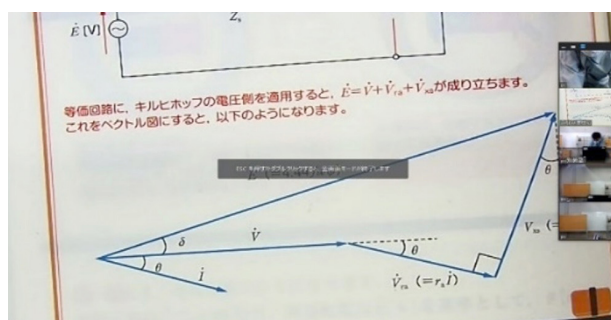 Ė [V]
Zs
等価回路に,キルヒホッフの電圧側を適用すると,Ė=V̇+V̇ra+V̇xsが成り立ちます。
これをベクトル図にすると,以下のようになります。
δ
V̇
θ
İ
θ
V̇ra (=raİ)
θ
Vxs (=